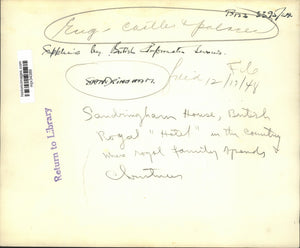 Eng. castles & palaces
Supplied by British Information Services.
SANDRINGHAM.
File
12/17/48
Sandringham House, British
Royal "Hotel" in the country
where royal family spends
Christmas
Return to Library